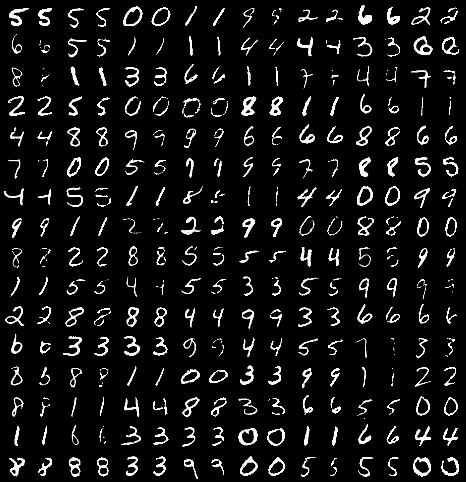 5 5 5 5 0 0 1 1 9 9 2 2 6 6 2 2
6 6 5 5 1 1 1 1 4 4 4 4 3 3 6 6
8 8 1 1 3 3 6 6 1 1 7 7 4 4 7 7
2 2 5 5 0 0 0 0 8 8 1 1 6 6 1 1
4 4 8 8 9 9 9 9 6 6 6 6 8 8 6 6
7 7 0 0 5 5 9 9 9 7 7 8 8 5 5
4 4 5 5 1 1 8 1 1 4 4 0 0 9 9
9 9 1 1 2 2 2 2 9 9 0 0 8 8 0 0
8 8 2 2 8 8 5 5 5 5 4 4 5 5 9 9
1 1 5 5 4 4 5 5 3 3 5 5 9 9 9 9
2 2 8 8 8 8 4 4 9 9 3 3 6 6 6 6
6 6 3 3 3 3 9 9 4 4 5 5 3 3
8 8 8 8 1 1 0 0 3 3 9 9 1 1 2 2
8 8 1 1 4 4 8 8 3 3 6 6 5 5 0 0
1 1 6 6 3 3 3 3 0 0 1 1 6 6 4 4
8 8 8 8 3 3 9 9 0 0 5 5 5 5 0 0